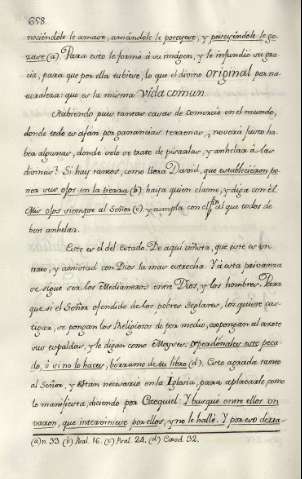 658.
nociéndole le amase, amándole le poseyese, y poseyéndole le go-
zase (a). Para esto le formó á su imágen, y le infundió su gra-
cia, para que por ella tubiese, lo que el divino original por na-
turaleza: que es la misma vida comun.
Habiendo, pues tantas casas de comercio en el mundo,
donde todo es afán por ganancias terrenas, ¿ no será justo ha-
ya algunas, donde solo se trate de pisarlas, y anhelar á las
divinas? Si hay tantos, como llora David, que establecieron po-
ner sus ojos en la tierra (b) haya quien clame, y diga con él
Mis ojos siempre al Señor (c) y cumpla con el fin al que todos de-
ben anhelar.
Este es el del estado. De aquí
trato, y amistad con Dios la mas estrecha. Y á esta privanza
se sigue ser los Medianeros entre Dios, y los hombres. Para
que si el Señor ofendido de los pobres Seglares, los quiere cas-
tigar, se pongan los Religiosos de por medio, expongan al azote
sus espaldas, y le digan como Moyses: ó perdónales este peca-
do, ó si no lo haces, bórrame de tu libro (d). Esto agrada tanto
al Señor, y están necesario en la Iglesia, para aplacarle como
lo manifiesta, diciendo por Ezequiel: Y busqué entre ellos un
varon, que interviniese por ellos, y no le hallé. Y por eso derra-
(a) n. 33 (b) Psal. 16. (c) Psal. 24. (d) Exod. 32.